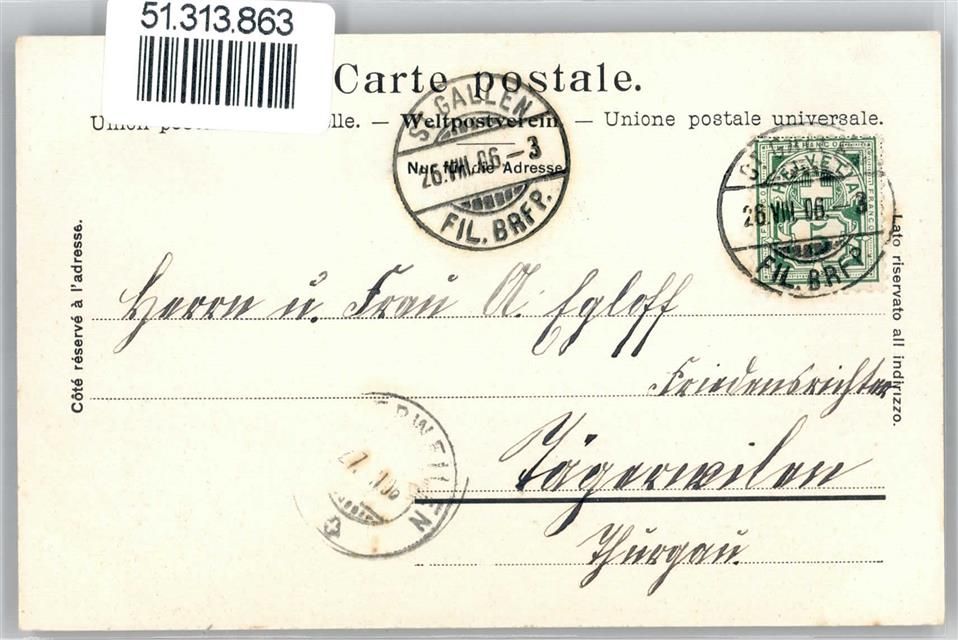 51.313.863
Carte postale.
Union lle. — Weltpostverein — Unione postale universale.
Nur für die Adresse.
ST. GALLEN
26.VIII.06.–3
FIL. BRFP.
HELVETIA
FRANCO
5
26.VIII.06.–3
FIL. BRFP.
Côté réservé à l'adresse.
Lato riservato all indirizzo.
Herrn u. Frau A. Egloff
Friedensrichter
Tägerwilen
Thurgau.
ERWEILEN